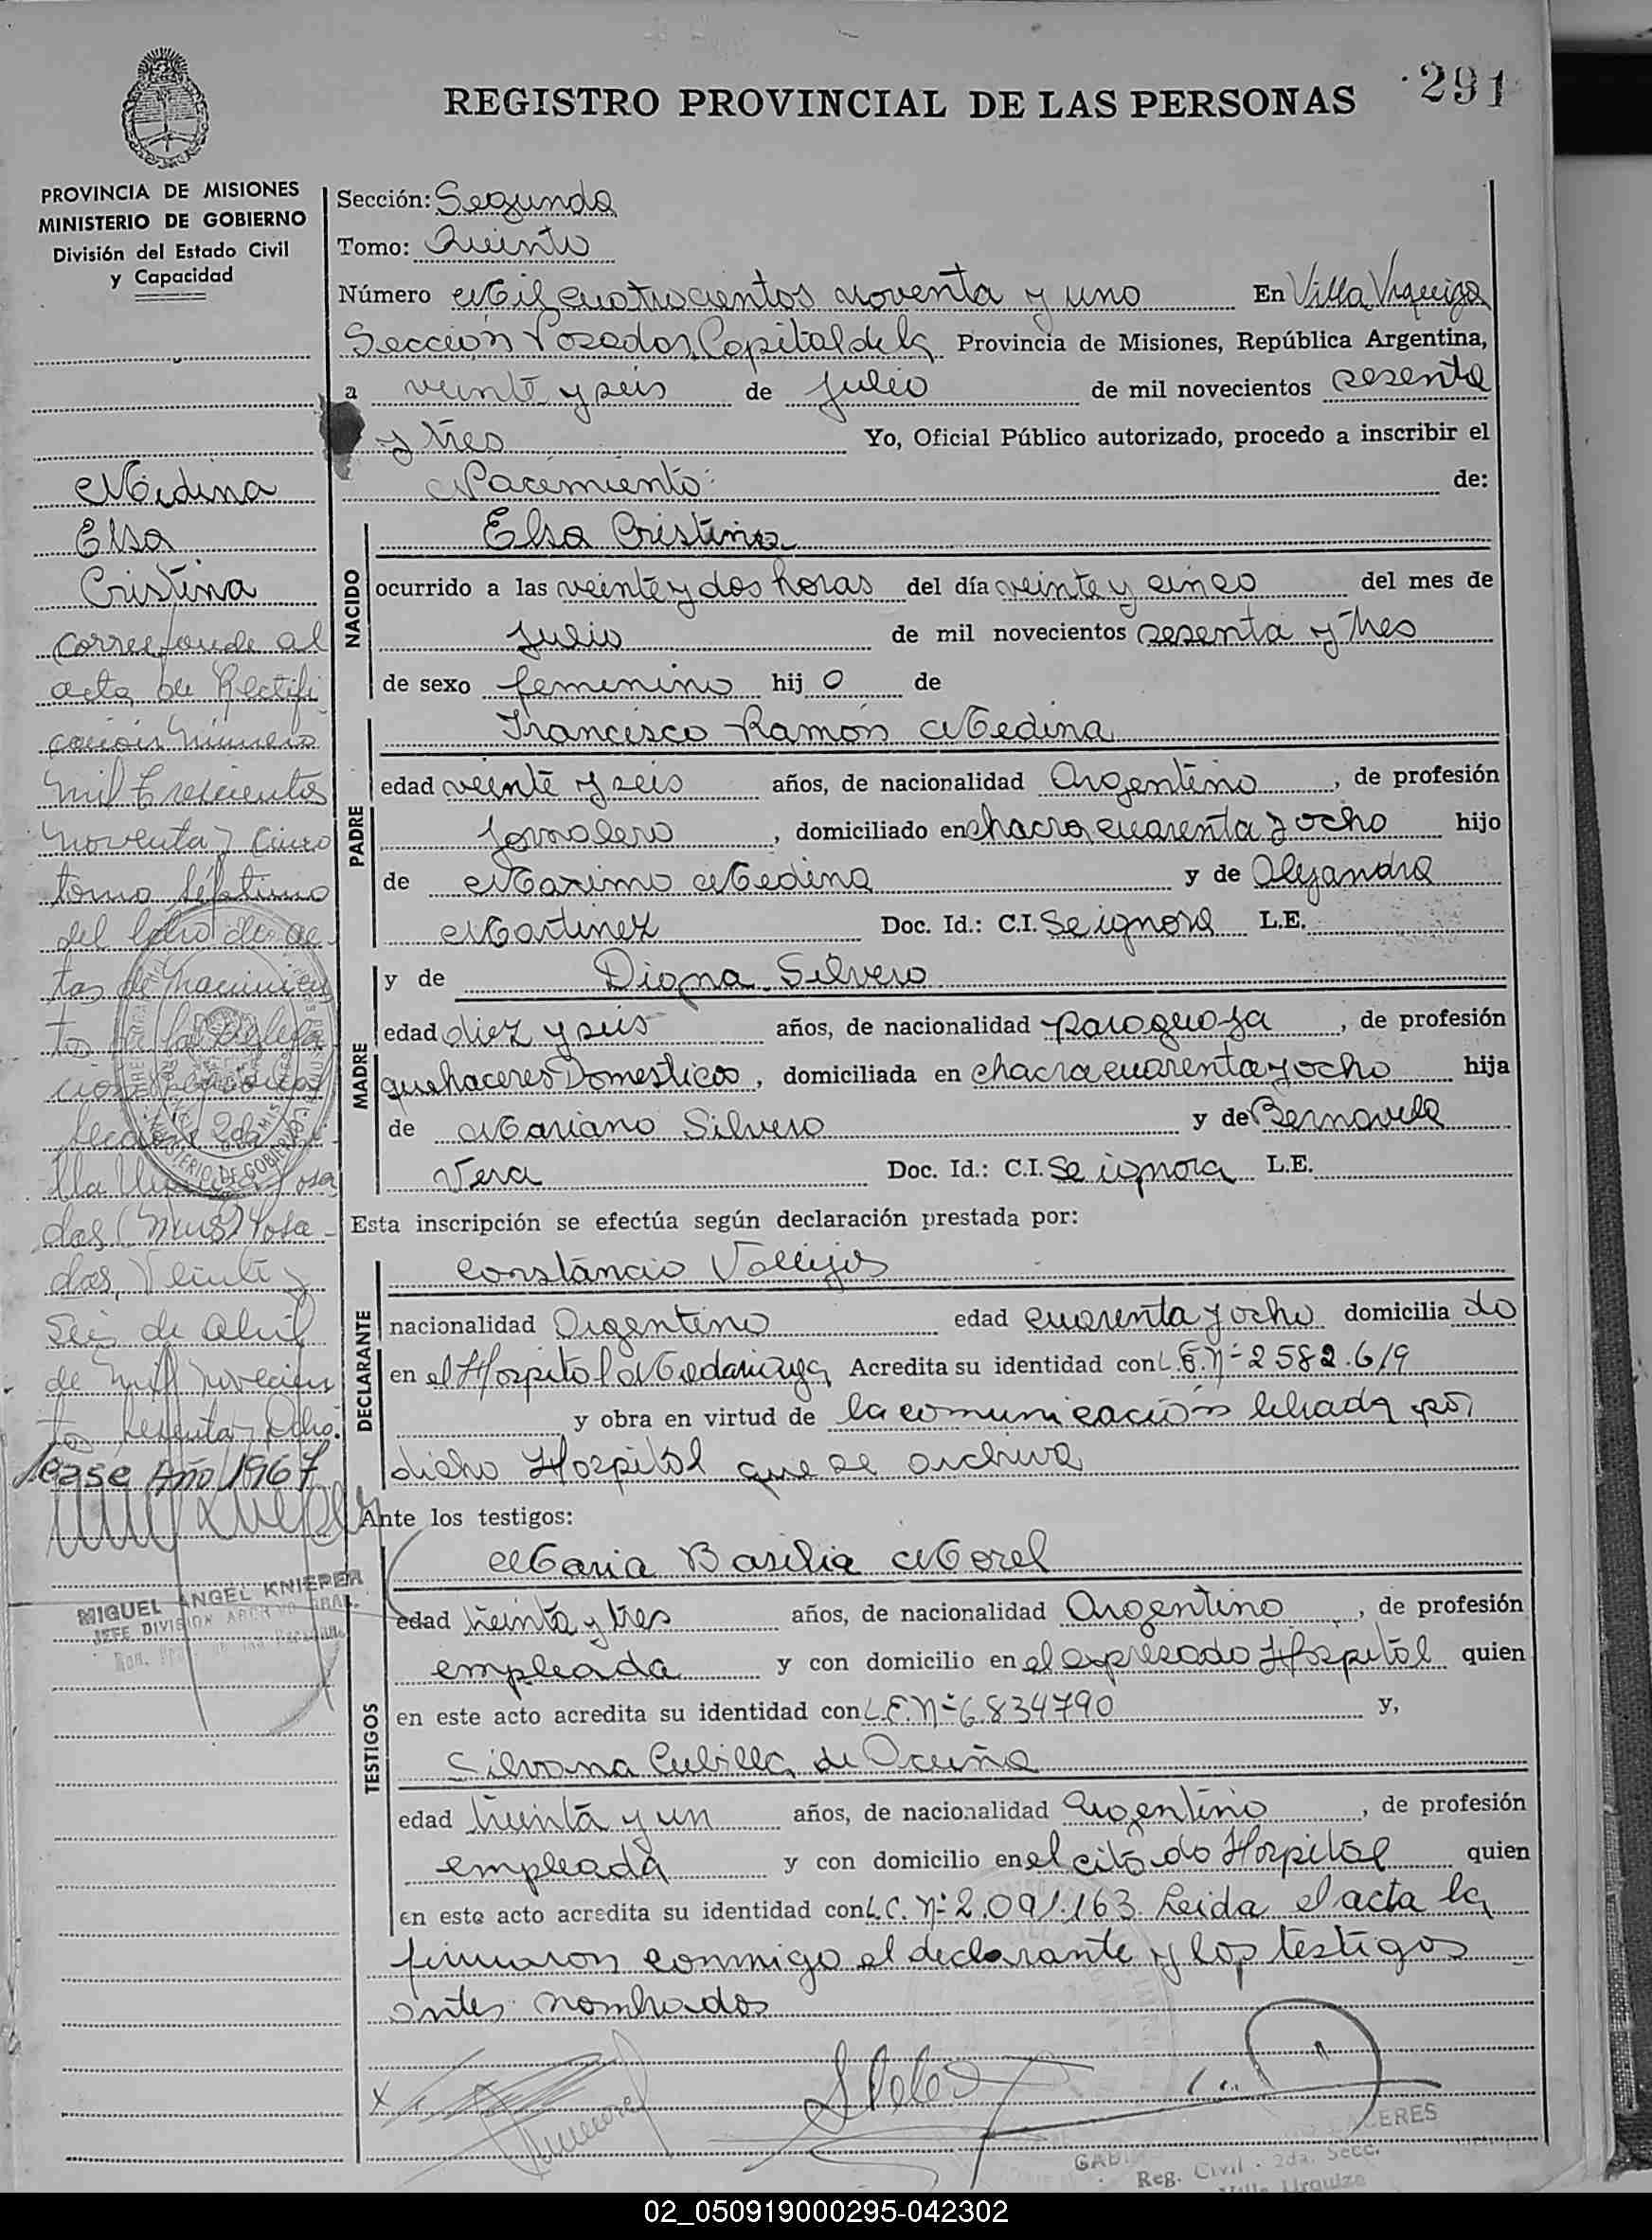 REGISTRO PROVINCIAL DE LAS PERSONAS
291
PROVINCIA DE MISIONES
MINISTERIO DE GOBIERNO
División del Estado Civil
y Capacidad
Medina
Elsa
Cristina
corresponde al
acta de Rectifi
cación Número
mil trescientos
noventa y cinco
tomo séptimo
del libro de ac
tas de nacimien
to de la Delega
ción
Sección 2da Vi
lla Urquiza Posa
das (Mnes) Posa
das, Veinti y
Seis de abril
de mil novecien
tos sesenta y ocho.
lease Año 1967
MIGUEL ANGEL KNIEPER
JEFE DIVISION ARCHIVO GRAL.
Sección: Segunda
Tomo: Quinto
Número Mil cuatrocientos noventa y uno En Villa Urquiza
Sección Posadas, Capital de la Provincia de Misiones, República Argentina,
a veinte y seis de julio de mil novecientos sesenta
y tres Yo, Oficial Público autorizado, procedo a inscribir el
Nacimiento de:
NACIDO
Elsa Cristina
ocurrido a las veinte y dos horas del día veinte y cinco del mes de
Julio de mil novecientos sesenta y tres
de sexo femenino hij o de
PADRE
Francisco Ramón Medina
edad veinte y seis años, de nacionalidad Argentino, de profesión
Jornalero, domiciliado en chacra cuarenta y ocho hijo
de Maximo Medina y de Alejandra
Martinez Doc. Id.: C.I. Se ignora L.E.
MADRE
y de Digna Silvero
edad diez y seis años, de nacionalidad paraguaya, de profesión
quehaceres Domesticos, domiciliada en chacra cuarenta y ocho hija
de Mariano Silvero y de Bernavela
Vera Doc. Id.: C.I. Se ignora L.E.
Esta inscripción se efectúa según declaración prestada por:
DECLARANTE
Constancio Vallejos
nacionalidad Argentino edad cuarenta y ocho domicilia do
en el Hospital Madariaga Acredita su identidad con L.E. Nº 2582.619
y obra en virtud de la comunicación librada por
dicho Hospital que se archiva
Ante los testigos:
TESTIGOS
Maria Basilia Morel
edad treinta y tres años, de nacionalidad Argentino, de profesión
empleada y con domicilio en el expresado Hospital quien
en este acto acredita su identidad con L.E. Nº 6.834790 y,
Silvana Cubilla de Acuña
edad treinta y un años, de nacionalidad Argentino, de profesión
empleada y con domicilio en el citado Hospital quien
en este acto acredita su identidad con L.C. Nº 2.091.163. Leida el acta la
firmaron conmigo el declarante y los testigos
antes nombrados
Reg. Civil - 2da. Secc.
Villa Urquiza
02_050919000295-042302